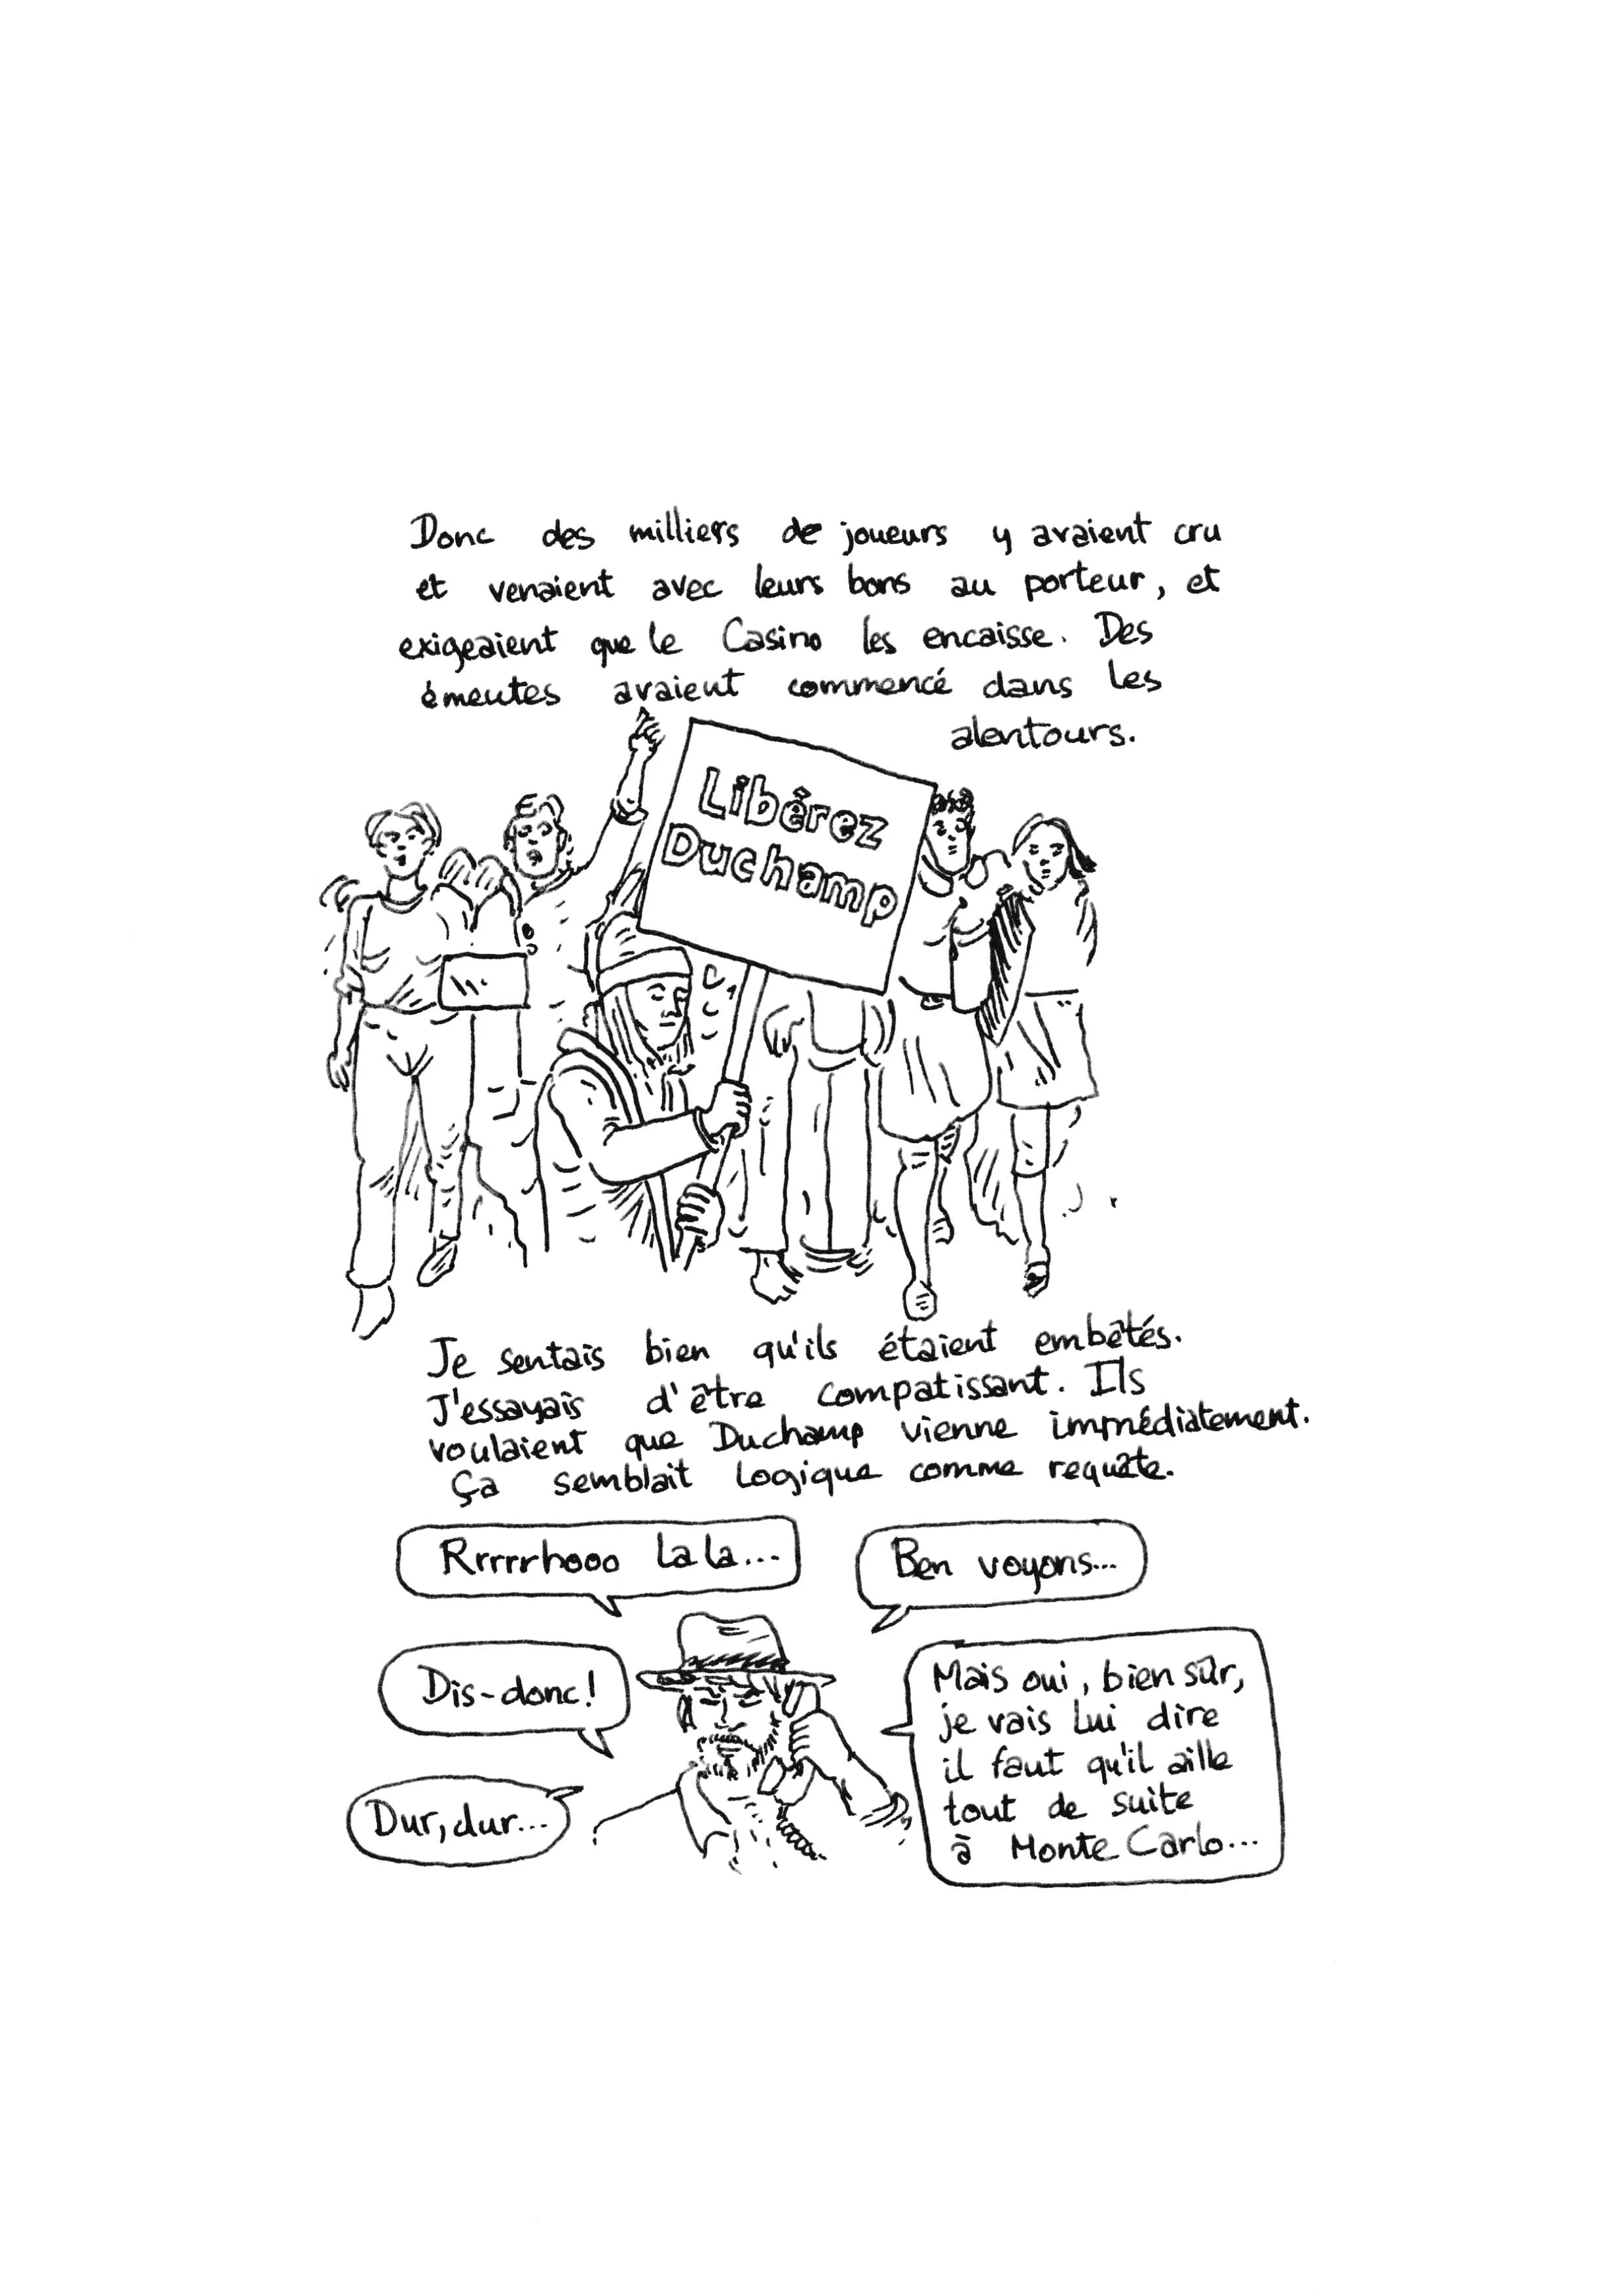 Donc des milliers de joueurs y avaient cru
et venaient avec leurs bons au porteur, et
exigeaient que le Casino les encaisse. Des
émeutes avaient commencé dans les
alentours.
Libérez
Duchamp
Je sentais bien qu'ils étaient embêtés.
J'essayais d'être compatissant. Ils
voulaient que Duchamp vienne immédiatement.
Ça semblait logique comme requête.
Rrrrrhooo La la...
Ben voyons...
Dis-donc!
Dur, dur...
Mais oui, bien sûr,
je vais lui dire
il faut qu'il aille
tout de suite
à Monte Carlo...